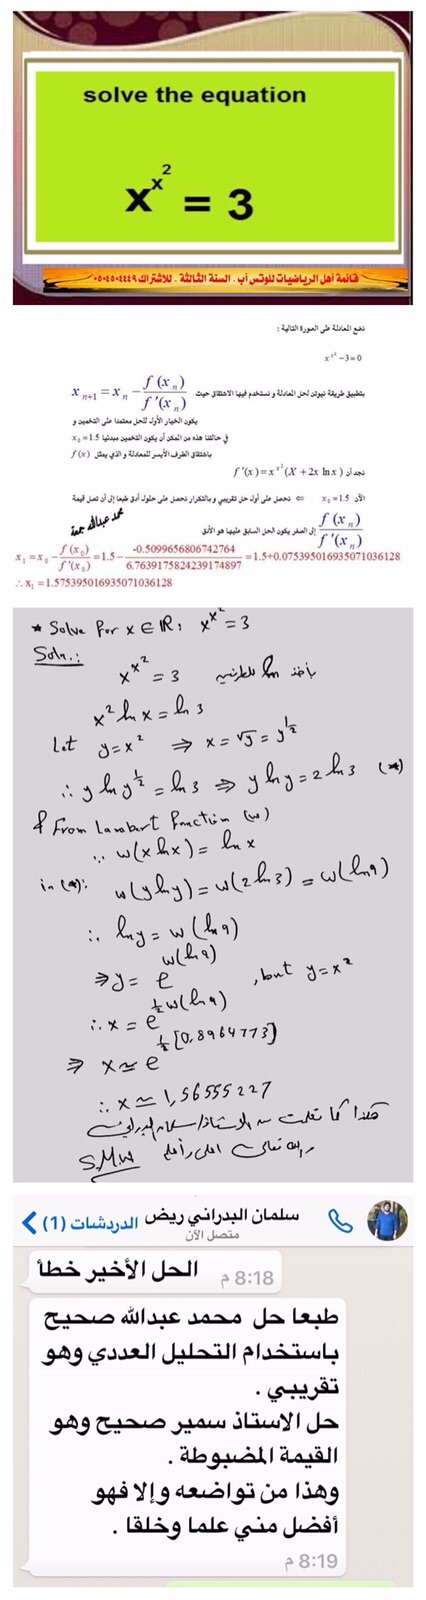 solve the equation
x^x^2 = 3
قائمة أهل الرياضيات للوتس أب . السنة الثالثة . للاشتراك ٠٥٠٤٥٠٤٤٤٩
نضع المعادلة على الصورة التالية :
x^x^2 − 3 = 0
بتطبيق طريقة نيوتن لحل المعادلة و نستخدم فيها الاشتقاق حيث x_{n+1} = x_n − f(x_n)/f'(x_n)
يكون الخيار الأول للحل معتمدا على التخمين و
في حالتنا هذه من الممكن أن يكون التخمين مبدئيا x_0 = 1.5
باشتقاق الطرف الأيسر للمعادلة و الذي يمثل f(x)
نجد أن f'(x) = x^x^2 (X + 2x ln x)
الآن x_0 = 1.5 ⇒ نحصل على أول حل تقريبي و بالتكرار نحصل على حلول أدق طبعا إلى أن تصل قيمة
f(x_n)/f'(x_n) إلى الصفر يكون الحل السابق عليها هو الأدق
محمد عبدالله جمعة
x_1 = x_0 − f(x_0)/f'(x_0) = 1.5 − -0.5099656806742764/6.7639175824239174897 = 1.5+0.075395016935071036128
∴ x_1 = 1.575395016935071036128
* Solve for x ∈ ℝ: x^x^2 = 3
Soln.:
x^x^2 = 3 بأخذ ln للطرفين
x^2 ln x = ln 3
Let y = x^2 ⇒ x = √y = y^{1/2}
∴ y ln y^{1/2} = ln 3 ⇒ y ln y = 2 ln 3 (*)
& From Lambert function (w)
∵ w(x ln x) = ln x
in (*): w(y ln y) = w(2 ln 3) = w(ln 9)
∴ ln y = w(ln 9)
⇒ y = e^{w(ln 9)}, but y = x^2
∴ x = e^{½ w(ln 9)}
⇒ x ≃ e^{½ [0,8964773]}
∴ x ≃ 1,56555227
هكذا كما تعلمت من الاستاذ / سلمان البدراني
S.M.W
سلمان البدراني ريض
الدردشات (1)
متصل الآن
الحل الأخير خطأ
8:18 م
طبعا حل محمد عبدالله صحيح
باستخدام التحليل العددي وهو
تقريبي .
حل الاستاذ سمير صحيح وهو
القيمة المضبوطة .
وهذا من تواضعه وإلا فهو
أفضل مني علما وخلقا .
8:19 م